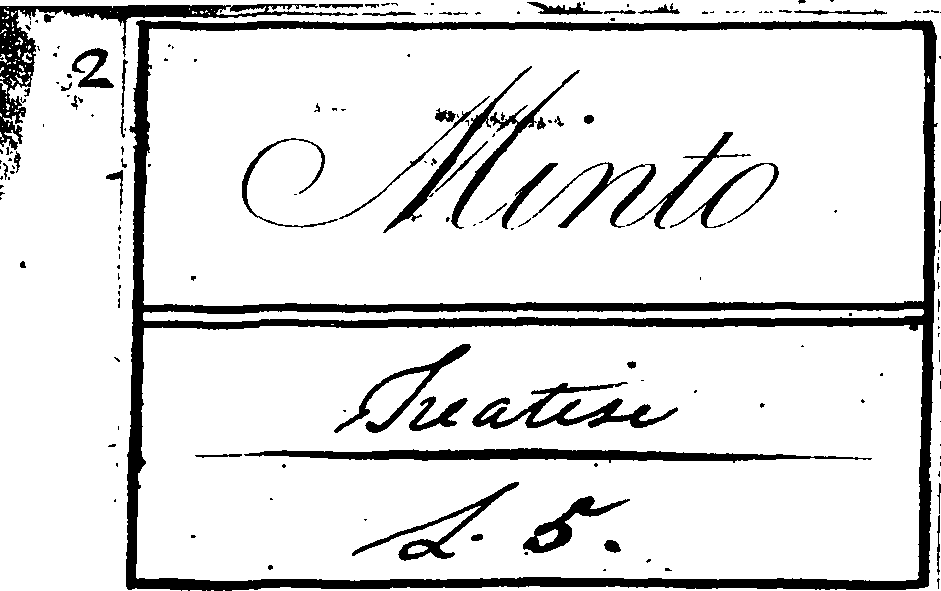 2
Minto
Treatise
L. 5.